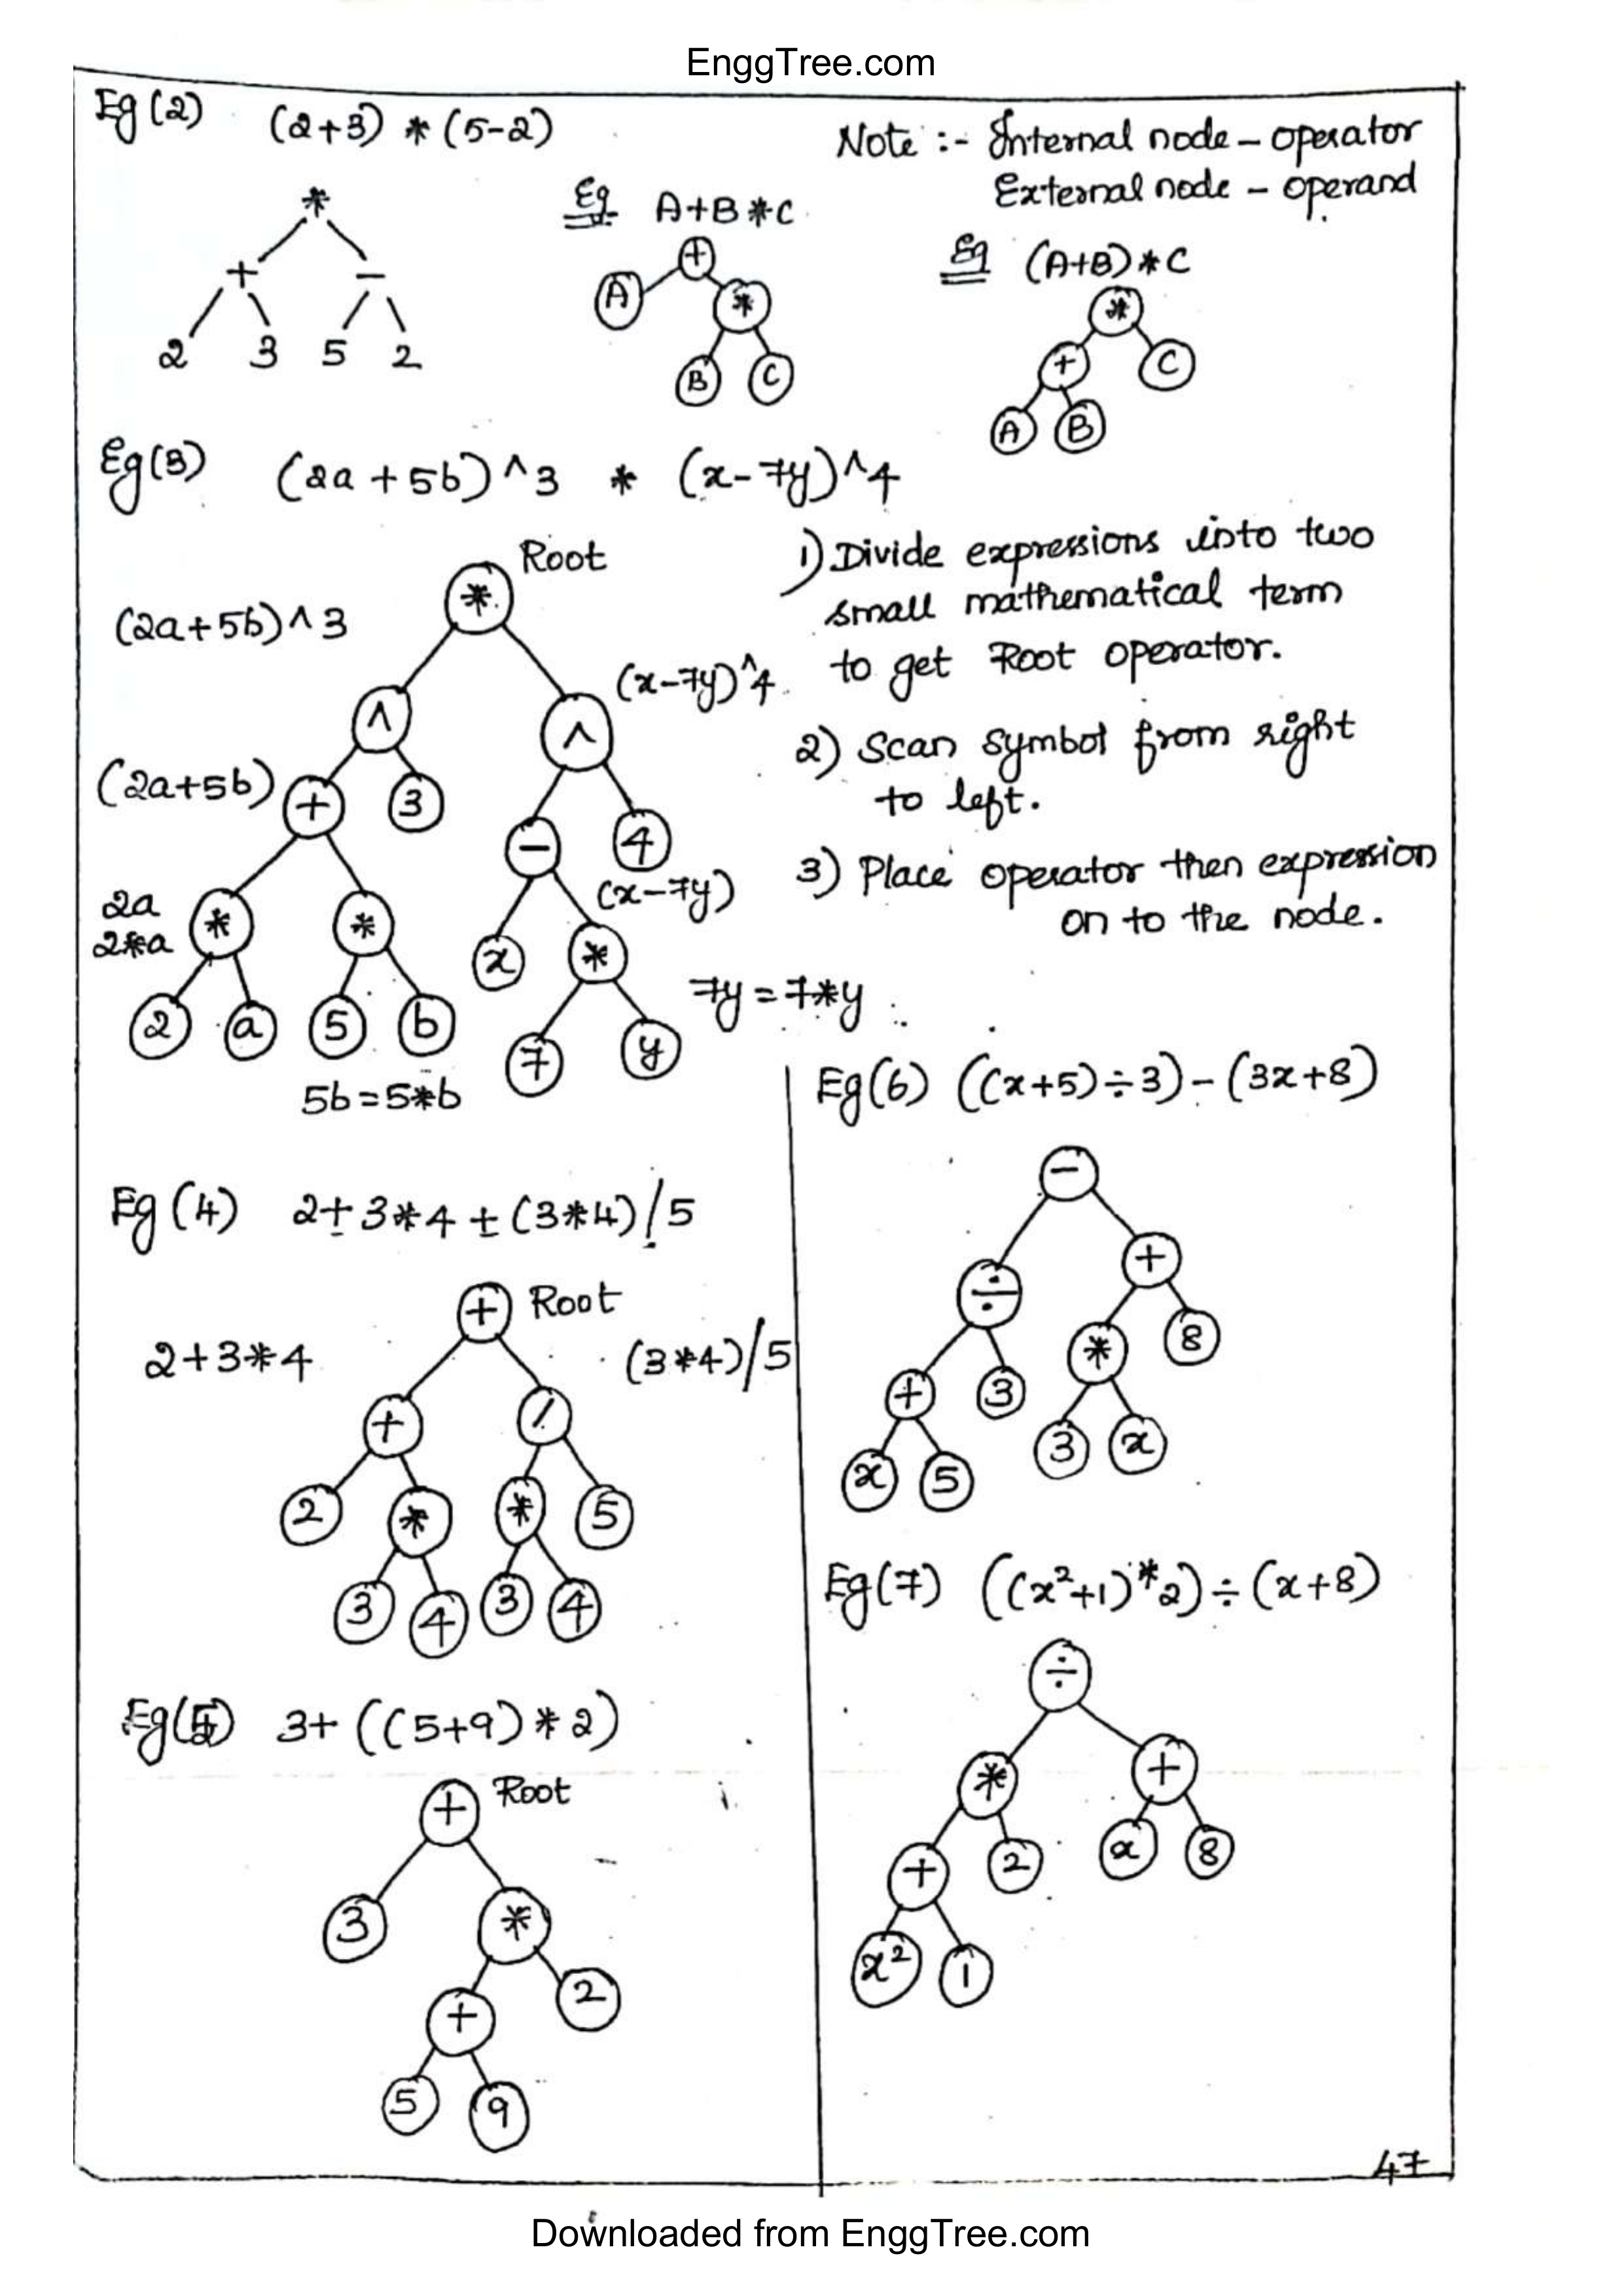 EnggTree.com
Eg(2) (2+3) * (5-2)
*
+ -
2 3 5 2
Eg A+B*C
+
A *
B C
Note :- Internal node - operator
External node - operand
Eg (A+B)*C
*
+ C
A B
Eg(3) (2a + 5b)^3 * (x-7y)^4
Root
*
(2a+5b)^3
(x-7y)^4
^ ^
(2a+5b)
+ 3 - 4
(x-7y)
2a
2*a
* * x *
2 a 5 b 7 y
7y = 7*y
5b = 5*b
1) Divide expressions into two
small mathematical term
to get Root operator.
2) Scan symbol from right
to left.
3) Place operator then expression
on to the node.
Eg (4) 2+3*4+(3*4)/5
+ Root
2+3*4 (3*4)/5
+ /
2 * * 5
3 4 3 4
Eg(5) 3+ ((5+9) * 2)
+ Root
3 *
+ 2
5 9
Eg(6) ((x+5)÷3) - (3x+8)
-
÷ +
+ 3 * 8
x 5 3 x
Eg(7) ((x²+1)*2) ÷ (x+8)
÷
* +
+ 2 x 8
x² 1
47
Downloaded from EnggTree.com